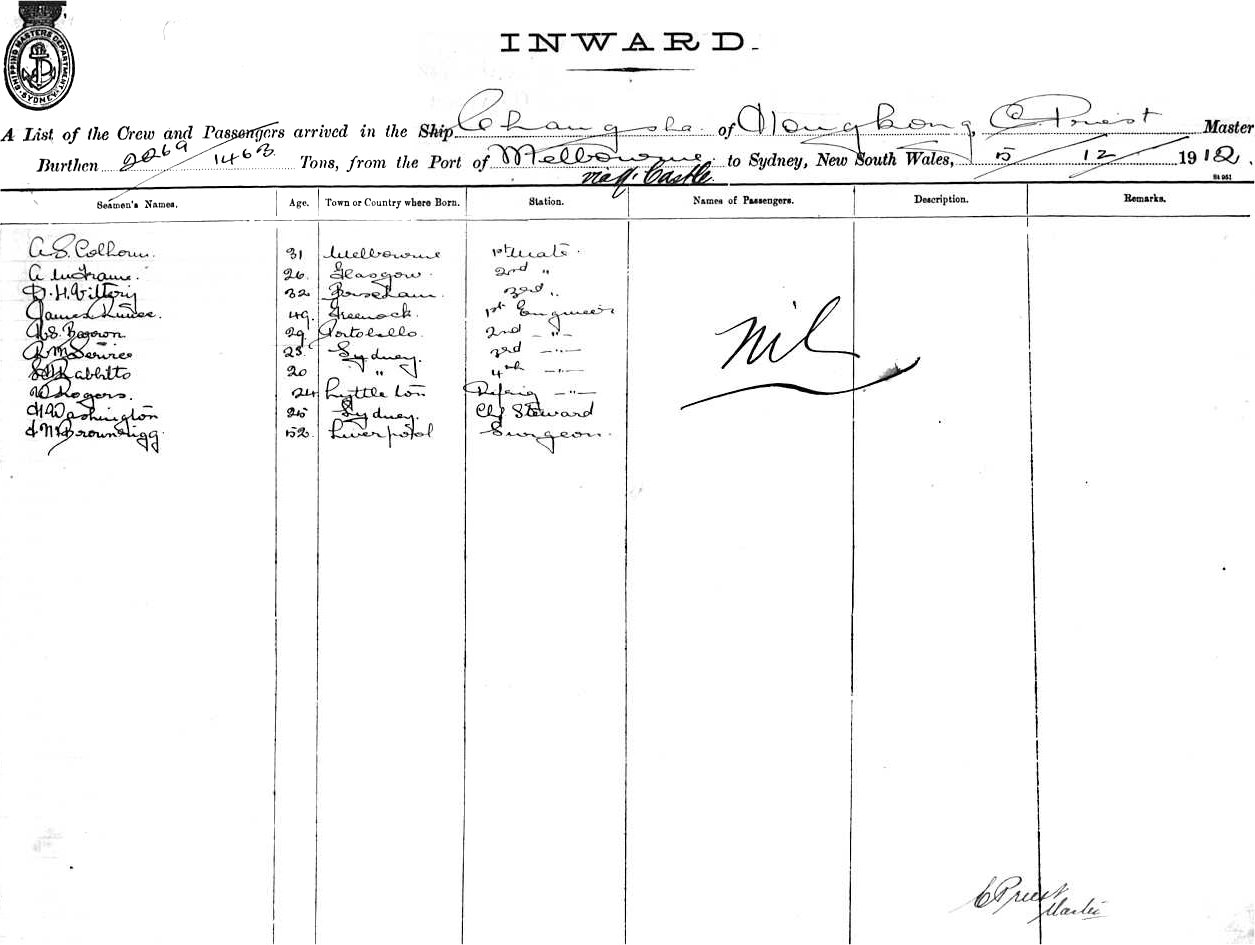 SHIPPING MASTERS DEPARTMENT
SYDNEY
INWARD.
A List of the Crew and Passengers arrived in the Ship Changsha of Hongkong, C Priest Master
Burthen 2269/1463 Tons, from the Port of Melbourne to Sydney, New South Wales, 5/12/1912.
via N. Castle
St 951
Seamen's Names. Age. Town or Country where Born. Station. Names of Passengers. Description. Remarks.
A. S. Colhoun. 31 Melbourne 1st Mate.
A McFrame. 26. Glasgow. 2nd "
D. H. Vittery 32 3rd "
James 49. Greenock. 1st Engineer
29. Portobello. 2nd - " -
R M Service 23. Sydney. 3rd - " -
Rabbitts 20 " 4th - " -
Rogers. 24 Lyttleton Refrig - " -
H Washington 25 Sydney. Chf Steward
Brownrigg. 52. Liverpool Surgeon.
Nil
C Priest
Master